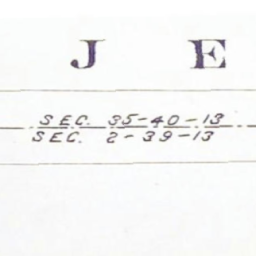 J E
SEC. 35-40-13
SEC. 2-39-13